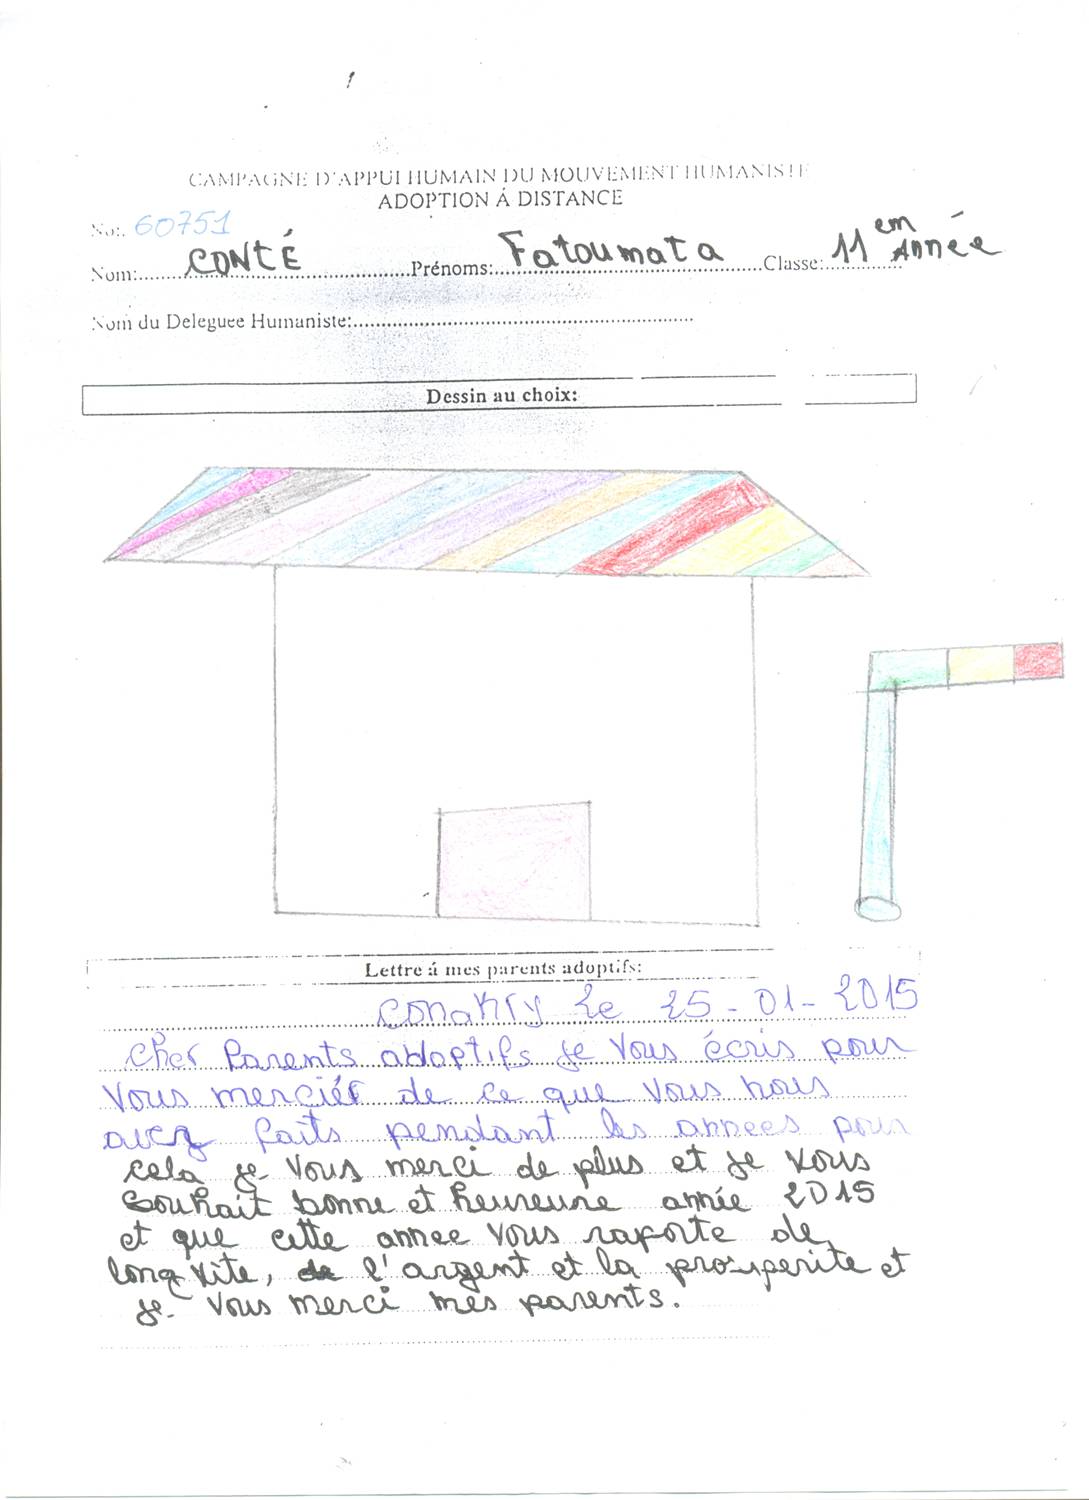 CAMPAGNE D'APPUI HUMAIN DU MOUVEMENT HUMANISTE
ADOPTION Á DISTANCE
No:. 60751
Nom:......CONTÉ......Prénoms:...Fatoumata......Classe:.11 em Année
Nom du Deleguee Humaniste:......
Dessin au choix:
Lettre á mes parents adoptifs:
Conakry le 25-01-2015
Cher Parents adoptifs je vous écris pour
vous merciér de ce que vous nous
avez faits pendant les annees pour
cela je vous merci de plus et je vous
souhait bonne et heureune année 2015
et que cette annee vous raporte de
long vite, de l'argent et la prosperite et
je vous merci mes parents.